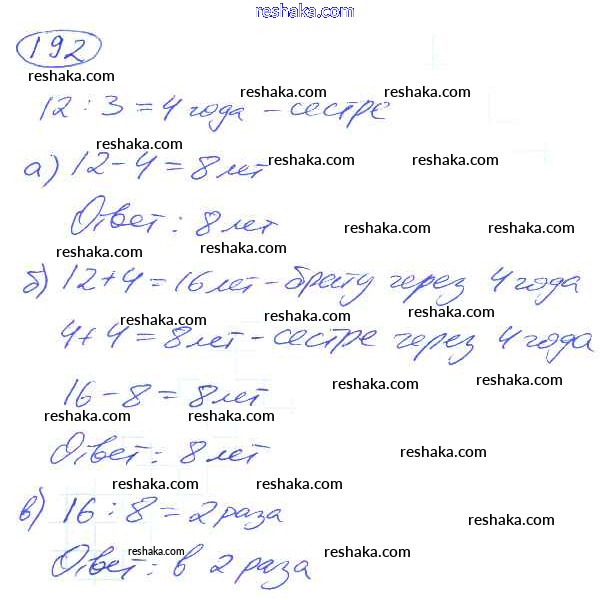 reshaka.com
192
reshaka.com
reshaka.com
reshaka.com
12 : 3 = 4 года - сестре
reshaka.com
reshaka.com
reshaka.com
а) 12 - 4 = 8 лет
Ответ: 8 лет
reshaka.com
reshaka.com
reshaka.com
reshaka.com
б) 12 + 4 = 16 лет - брату через 4 года
reshaka.com
reshaka.com
reshaka.com
4 + 4 = 8 лет - сестре через 4 года
reshaka.com
reshaka.com
16 - 8 = 8 лет
reshaka.com
reshaka.com
Ответ: 8 лет
reshaka.com
reshaka.com
reshaka.com
в) 16 : 8 = 2 раза
reshaka.com
reshaka.com
reshaka.com
Ответ: в 2 раза